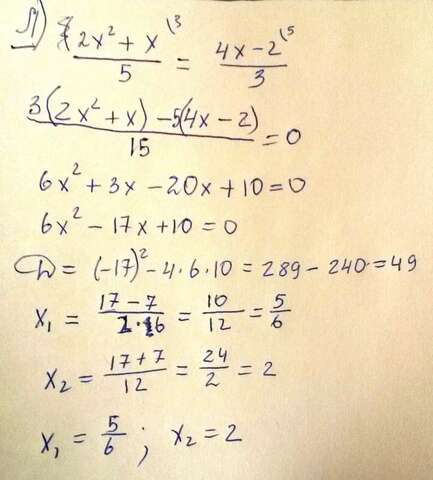 Л) (2x² + x)/5 ⁽³ = (4x − 2)/3 ⁽⁵
(3(2x² + x) − 5(4x − 2))/15 = 0
6x² + 3x − 20x + 10 = 0
6x² − 17x + 10 = 0
D = (−17)² − 4·6·10 = 289 − 240 = 49
x₁ = (17 − 7)/(2·6) = 10/12 = 5/6
x₂ = (17 + 7)/12 = 24/2 = 2
x₁ = 5/6 ; x₂ = 2